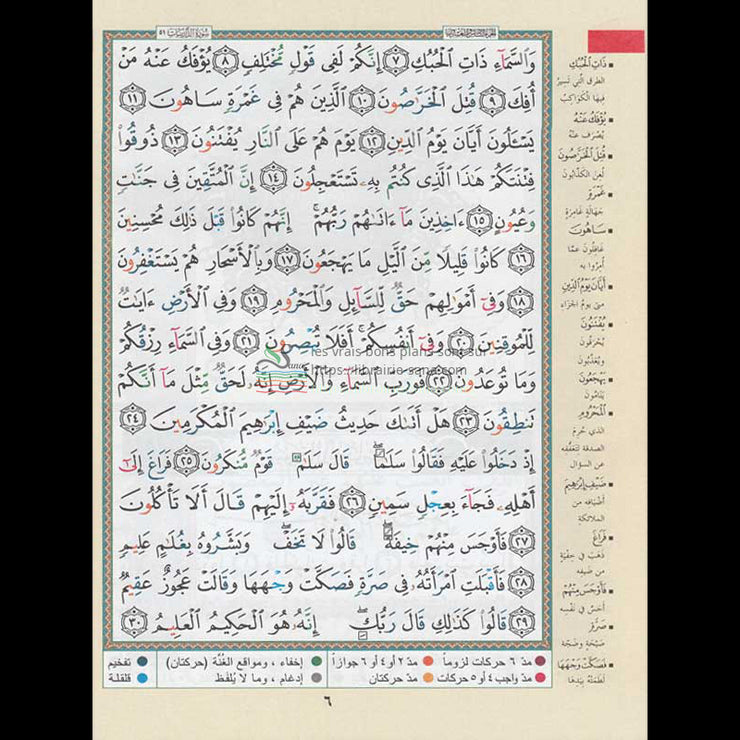 سورة الذاريات ٥١
وَالسَّمَاءِ ذَاتِ الْحُبُكِ ٧ إِنَّكُمْ لَفِي قَوْلٍ مُّخْتَلِفٍ ٨ يُؤْفَكُ عَنْهُ مَنْ
أُفِكَ ٩ قُتِلَ الْخَرَّاصُونَ ١٠ الَّذِينَ هُمْ فِي غَمْرَةٍ سَاهُونَ ١١
يَسْـَٔلُونَ أَيَّانَ يَوْمُ الدِّينِ ١٢ يَوْمَ هُمْ عَلَى النَّارِ يُفْتَنُونَ ١٣ ذُوقُوا
فِتْنَتَكُمْ هَٰذَا الَّذِي كُنتُم بِهِ تَسْتَعْجِلُونَ ١٤ إِنَّ الْمُتَّقِينَ فِي جَنَّاتٍ
وَعُيُونٍ ١٥ ءَاخِذِينَ مَا ءَاتَاهُمْ رَبُّهُمْ ۚ إِنَّهُمْ كَانُوا قَبْلَ ذَٰلِكَ مُحْسِنِينَ
١٦ كَانُوا قَلِيلًا مِّنَ الَّيْلِ مَا يَهْجَعُونَ ١٧ وَبِالْأَسْحَارِ هُمْ يَسْتَغْفِرُونَ
١٨ وَفِي أَمْوَالِهِمْ حَقٌّ لِّلسَّائِلِ وَالْمَحْرُومِ ١٩ وَفِي الْأَرْضِ ءَايَاتٌ
لِّلْمُوقِنِينَ ٢٠ وَفِي أَنفُسِكُمْ ۚ أَفَلَا تُبْصِرُونَ ٢١ وَفِي السَّمَاءِ رِزْقُكُمْ
وَمَا تُوعَدُونَ ٢٢ فَوَرَبِّ السَّمَاءِ وَالْأَرْضِ إِنَّهُ لَحَقٌّ مِّثْلَ مَا أَنَّكُمْ
تَنطِقُونَ ٢٣ هَلْ أَتَاكَ حَدِيثُ ضَيْفِ إِبْرَاهِيمَ الْمُكْرَمِينَ ٢٤
إِذْ دَخَلُوا عَلَيْهِ فَقَالُوا سَلَامًا ۖ قَالَ سَلَامٌ قَوْمٌ مُّنكَرُونَ ٢٥ فَرَاغَ إِلَىٰ
أَهْلِهِ فَجَاءَ بِعِجْلٍ سَمِينٍ ٢٦ فَقَرَّبَهُ إِلَيْهِمْ قَالَ أَلَا تَأْكُلُونَ
٢٧ فَأَوْجَسَ مِنْهُمْ خِيفَةً ۖ قَالُوا لَا تَخَفْ ۖ وَبَشَّرُوهُ بِغُلَامٍ عَلِيمٍ
٢٨ فَأَقْبَلَتِ امْرَأَتُهُ فِي صَرَّةٍ فَصَكَّتْ وَجْهَهَا وَقَالَتْ عَجُوزٌ عَقِيمٌ
٢٩ قَالُوا كَذَٰلِكِ قَالَ رَبُّكِ ۖ إِنَّهُ هُوَ الْحَكِيمُ الْعَلِيمُ ٣٠
ذَاتِ الْحُبُكِ
الطرق التي تسير
فيها الكواكب
يُؤْفَكُ عَنْهُ
يُصْرَف عنه
قُتِلَ الْخَرَّاصُونَ
لُعِنَ الكذّابون
غَمْرَةٍ
جهالة غامرة
سَاهُونَ
غافلون عمّا
أُمِروا به
أَيَّانَ يَوْمُ الدِّينِ
متى يوم الجزاء
يُفْتَنُونَ
يُحْرَقون
ويُعذّبون
يَهْجَعُونَ
ينامون
الْمَحْرُومِ
الذي حُرِم
الصدقة لتعفّفه
عن السؤال
ضَيْفِ إِبْرَاهِيمَ
أضيافه من
الملائكة
فَرَاغَ
ذهب في خِفْيَة
من ضيفه
فَأَوْجَسَ مِنْهُمْ
أحسّ في نفسه
صَرَّةٍ
صيحة وضجّة
فَصَكَّتْ وَجْهَهَا
لطمته بيدها
les vrais bons plans sont sur
https://librairie-sana.com
Sana
مدّ ٦ حركات لزوماً مدّ ٢ أو ٤ أو ٦ جوازاً إخفاء ، ومواقع الغُنّة (حركتان) تفخيم
مدّ واجب ٤ أو ٥ حركات مدّ حركتان إدغام ، وما لا يُلفَظ قلقلة
٦